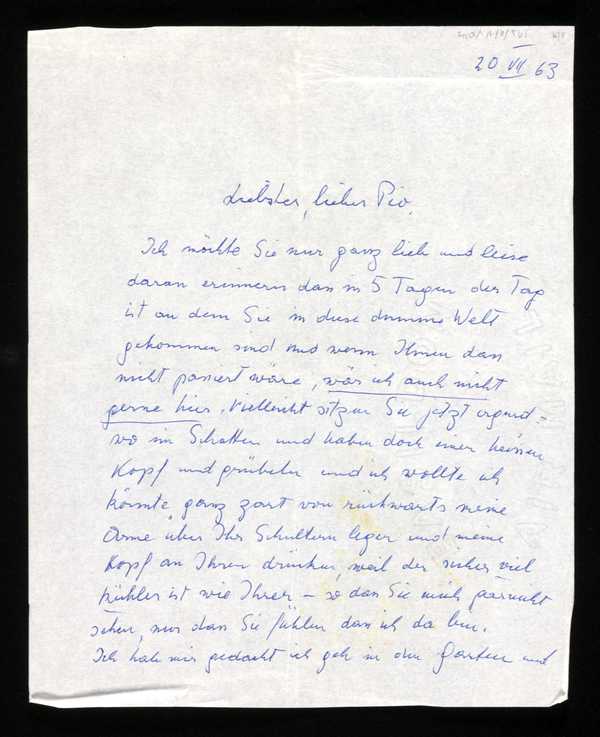 20 VII 63
Liebster, lieber Pio,
Ich möchte Sie nur ganz lieb und leise
daran erinnern dass in 5 Tagen der Tag
ist an dem Sie in diese dumme Welt
gekommen sind und wenn Ihnen das
nicht passiert wäre, wär ich auch nicht
gerne hier. Vielleicht sitzen Sie jetzt irgend-
wo im Schatten und haben doch einen heissen
Kopf und grübeln und ich wollte ich
könnte ganz zart von rückwärts meine
Arme über Ihre Schultern legen und meinen
Kopf an Ihren drücken, weil der sicher viel
kühler ist wie Ihrer – so dass Sie mich garnicht
sehen, nur dass Sie fühlen dass ich da bin.
Ich hab mir gedacht ich geh in den Garten und